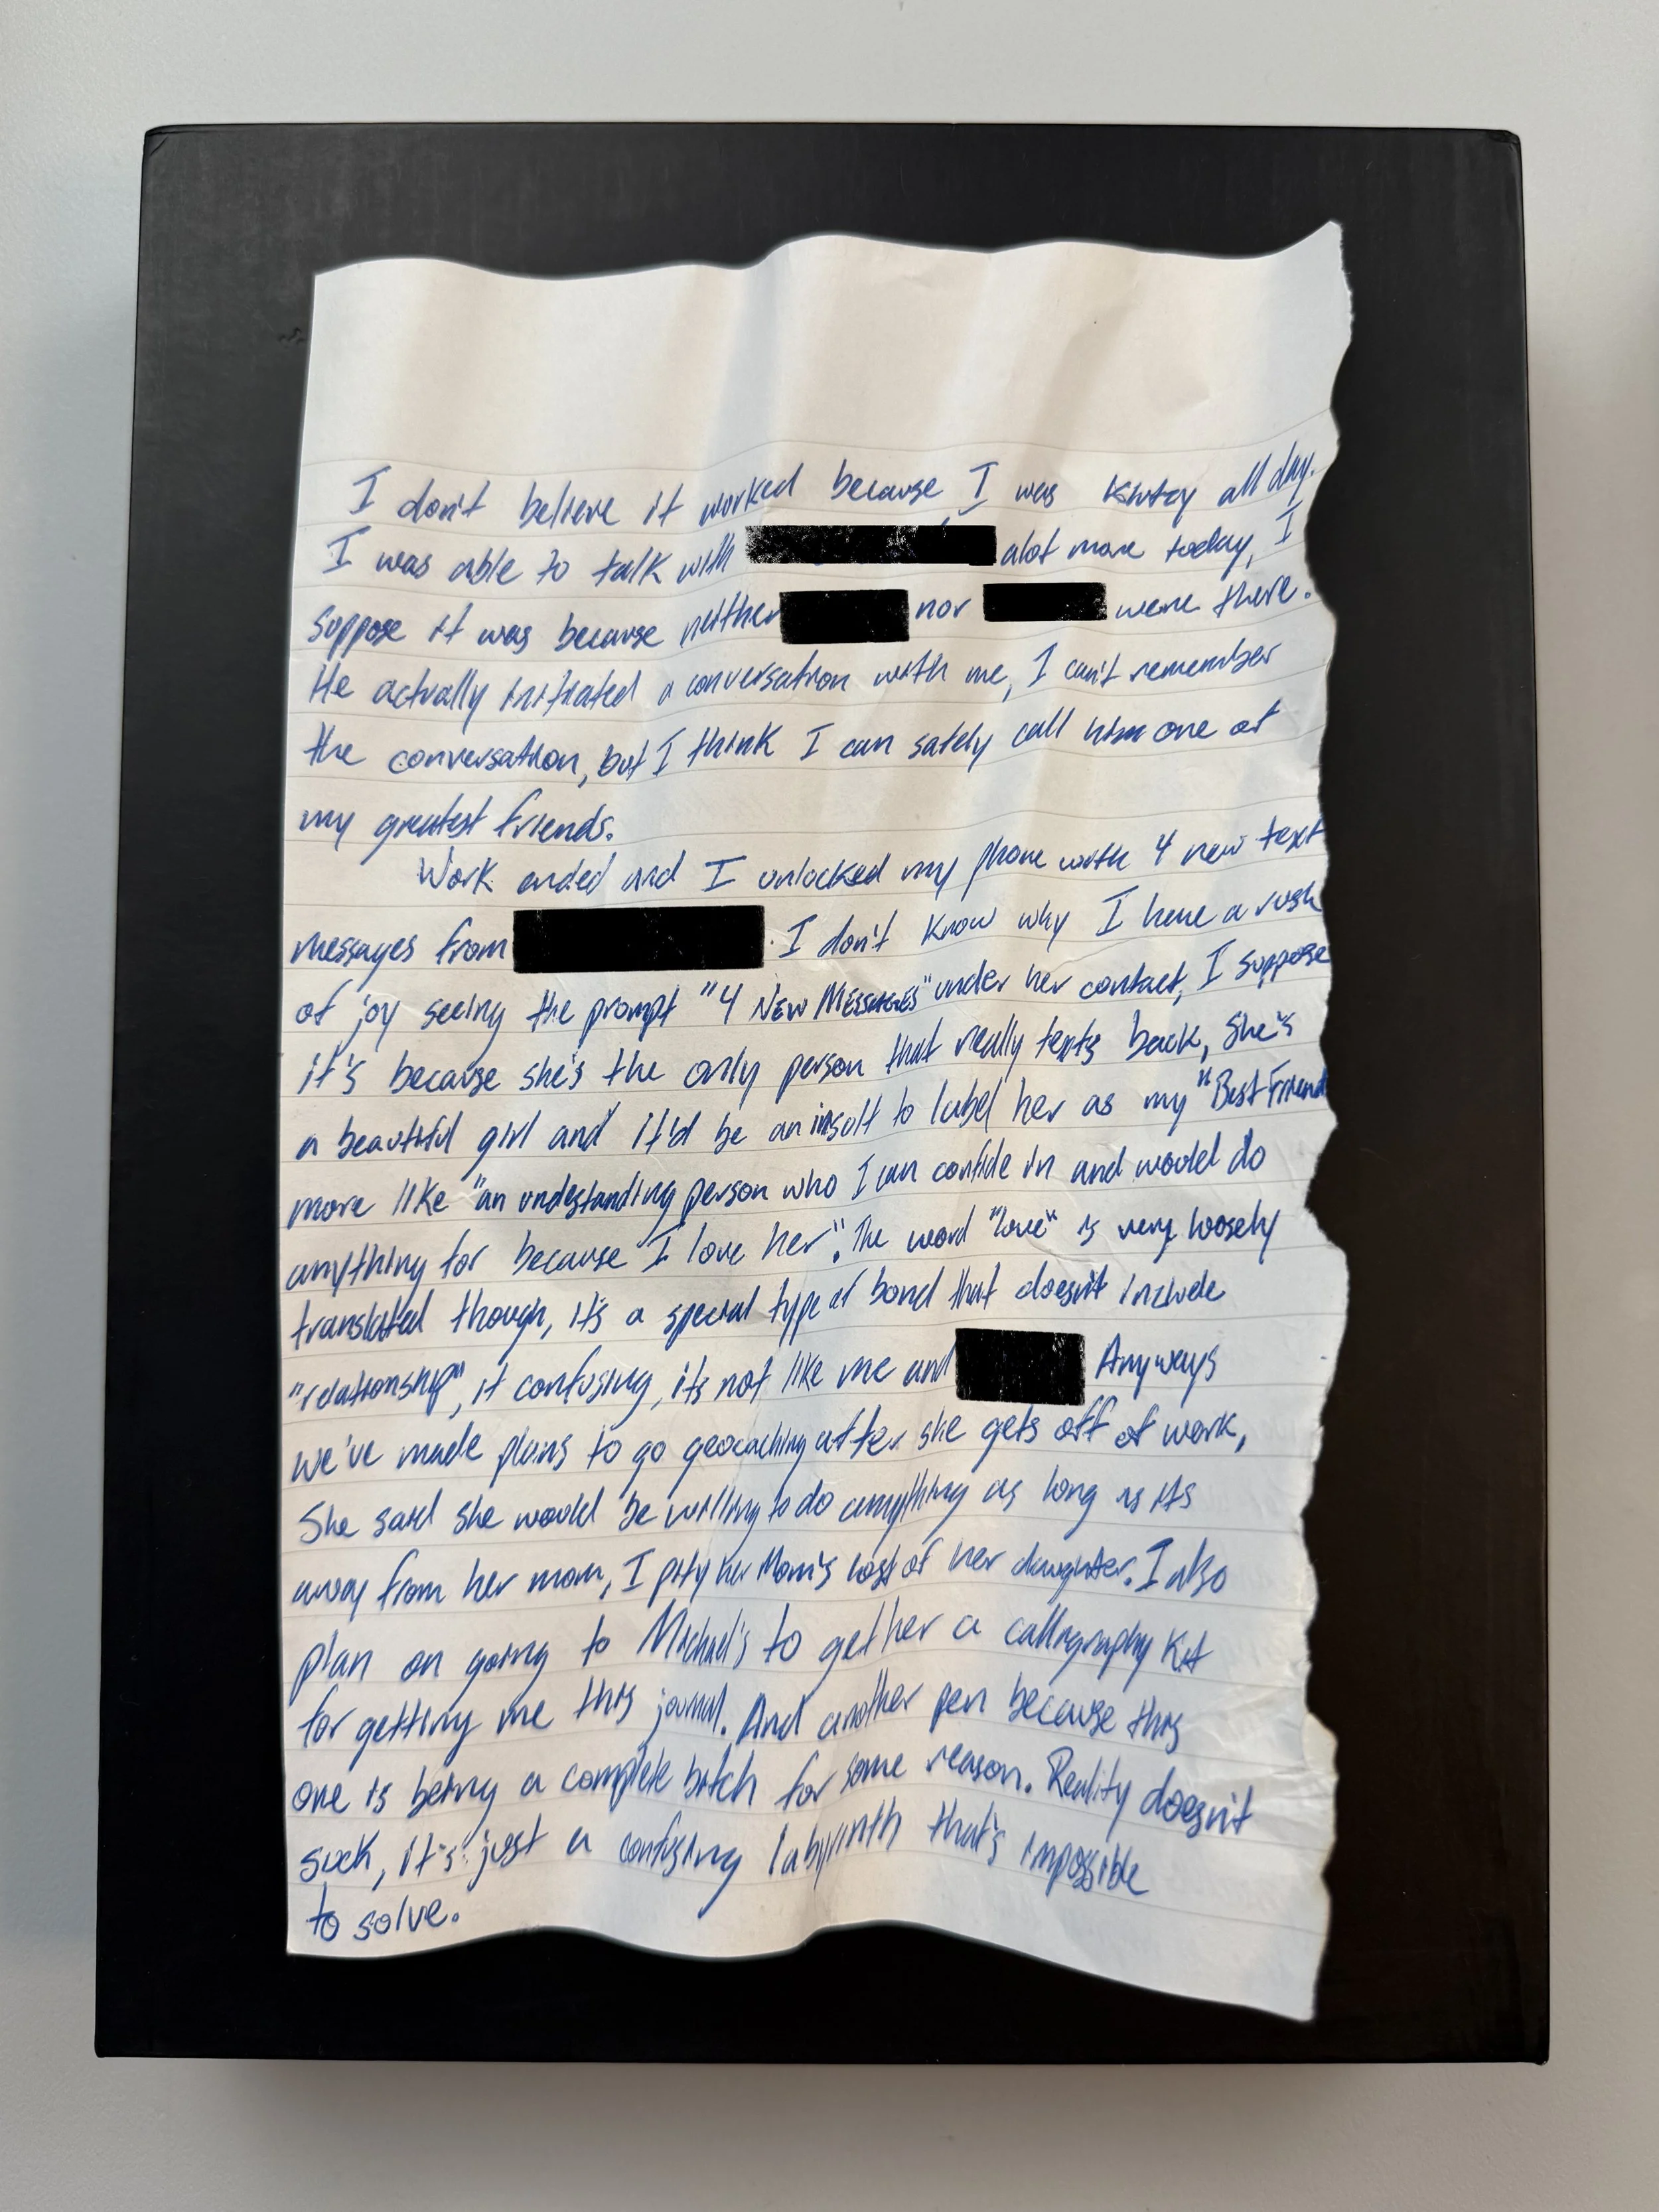 I don't believe it worked because, I was klutzy all day.
I was able to talk with alot more today, I
suppose it was because neither nor were there.
He actually initiated a conversation with me, I can't remember
the conversation, but I think I can safely call him one of
my greatest friends.
Work ended and I unlocked my phone with 4 new text
messages from . I don't know why I have a rush
of joy seeing the prompt "4 NEW MESSAGES" under her contact, I suppose
it's because she's the only person that really texts back, She's
a beautiful girl and it'd be an insult to label her as my "Best Friend
more like "an undestanding person who I can confide in and would do
anything for because I love her". The word "love" is very loosely
translated though, it's a special type of bond that doesn't include
"relationship", it confusing, its not like me and Anyways
we've made plans to go geocaching after she gets off of work,
She said she would be willing to do anything as long as its
away from her mom, I pity her Mom's loss of her daughter. I also
plan on going to Michael's to get her a calligraphy kit
for getting me this journal. And another pen because this
one is being a complete bitch for some reason. Reality doesn't
suck, it's just a confusing labyrinth that's impossible
to solve.